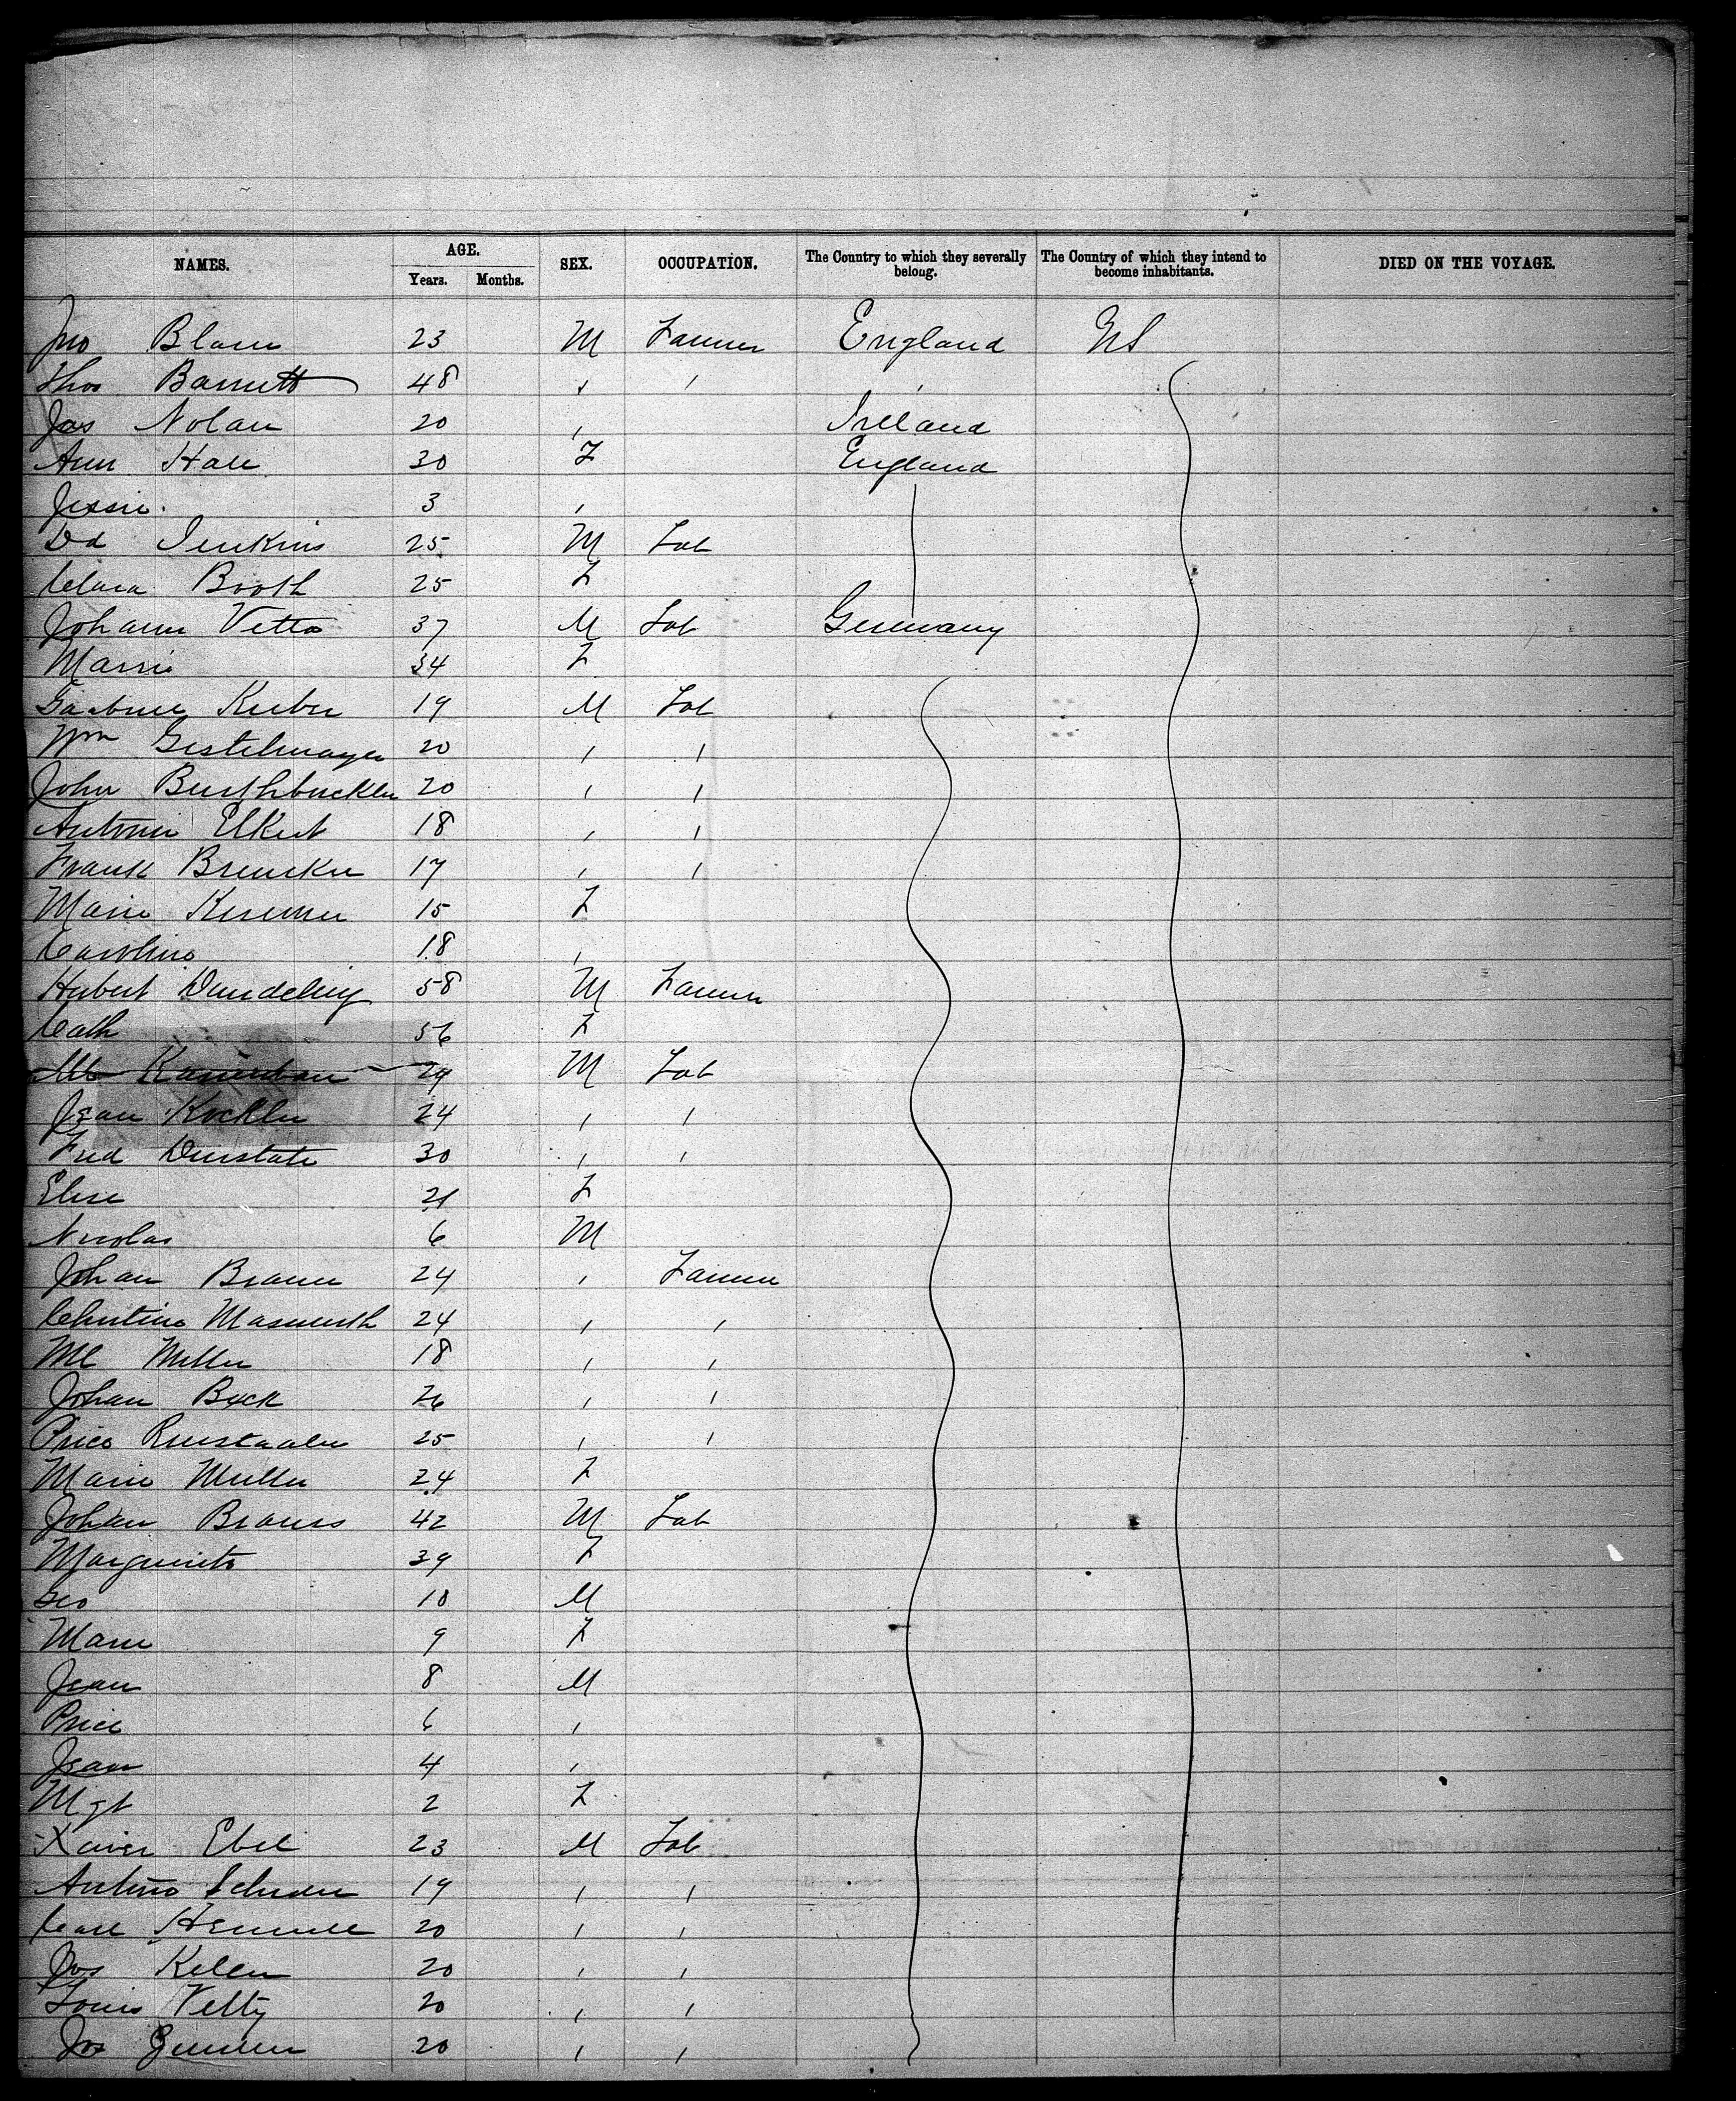 NAMES. AGE. Years. Months. SEX. OCCUPATION. The Country to which they severally belong. The Country of which they intend to become inhabitants. DIED ON THE VOYAGE.
Jno 23 M Farmer England US
Thos Barnett 48 , ,
Jas Nolan 20 , Ireland
Ann Hale 30 F England
Jessie 3 ,
Dd Jenkins 25 M Lab
Clara Booth 25 F
Johann Vetta 37 M Lab Germany
Marrie 34 F
19 M Lab
Wm Gestelmayer 20 , ,
John 20 , ,
Antonin Elkert 18 , ,
Frank Breucker 17 , ,
Marie 15 F
Carolina 18 ,
Hubert Dundeling 58 M Farmer
Cath 56 F
29 M Lab
Jean Kockler 24 , ,
Fred 30 , ,
Elise 21 F
Nicolas 6 M
Johan Braun 24 , Farmer
Christine 24 , ,
Ml Miller 18 , ,
Johan Back 26 , ,
25 , ,
Marie Muller 24 F
Johan Brauns 42 M Lab
Marguerite 39 F
Geo 10 M
Marie 9 F
Jean 8 M
Price 6 ,
Jean 4 ,
Mgt 2 F
Xavier Ebel 23 M Lab
Antino 19 , ,
Carl 20 , ,
Jos Keller 20 , ,
Louis Vetty 20 , ,
Jos 20 , ,